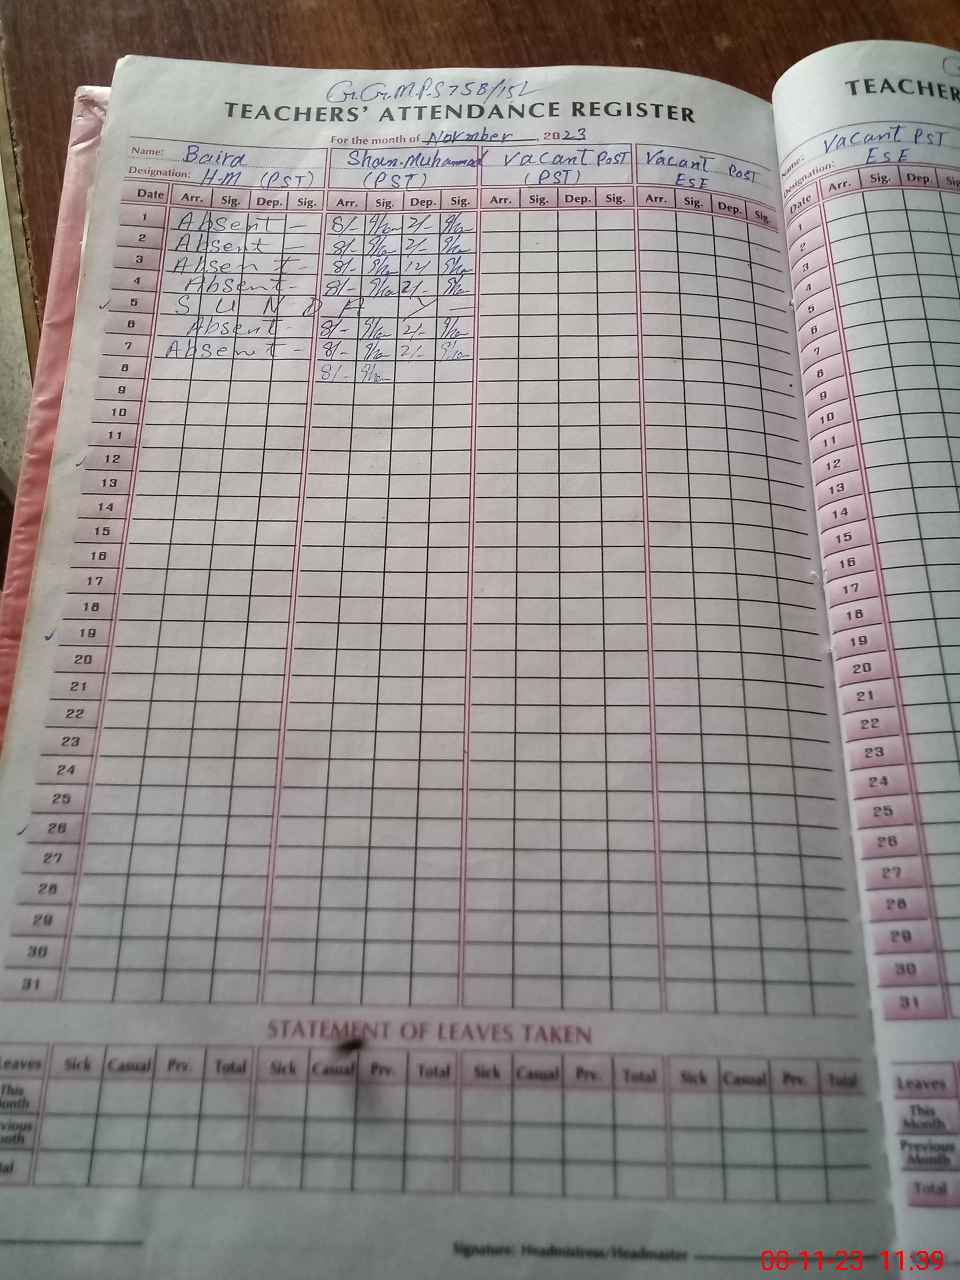 G.G.M.P.S 75B/15L
TEACHERS' ATTENDANCE REGISTER
For the month of November, 2023
Name: Baird Shan Muhammad Vacant Post Vacant Post
Designation: H.M (PST) (PST) (PST) ESE
Date Arr. Sig. Dep. Sig. Arr. Sig. Dep. Sig. Arr. Sig. Dep. Sig. Arr. Sig. Dep. Sig.
1 Absent — 8/- 2/-
2 Absent — 8/- 2/-
3 Absent - 8/- 12/
4 Absent - 8/- 2/-
5 SUNDAY
6 Absent - 8/- 2/-
7 Absent - 8/- 2/-
8 8/-
9
10
11
12
13
14
15
16
17
18
19
20
21
22
23
24
25
26
27
28
29
30
31
STATEMENT OF LEAVES TAKEN
Leaves Sick Casual Prv. Total Sick Casual Prv. Total Sick Casual Prv. Total Sick Casual Prv. Total
This
Month
Signature: Headmistress/Headmaster
TEACHER
Name: Vacant PST
Designation: ESE
Date Arr. Sig. Dep. Sig
1
2
3
4
5
6
7
8
9
10
11
12
13
14
15
16
17
18
19
20
21
22
23
24
25
26
27
28
29
30
31
Leaves
This
Month
Previous
Month
Total
08-11-23 11.39